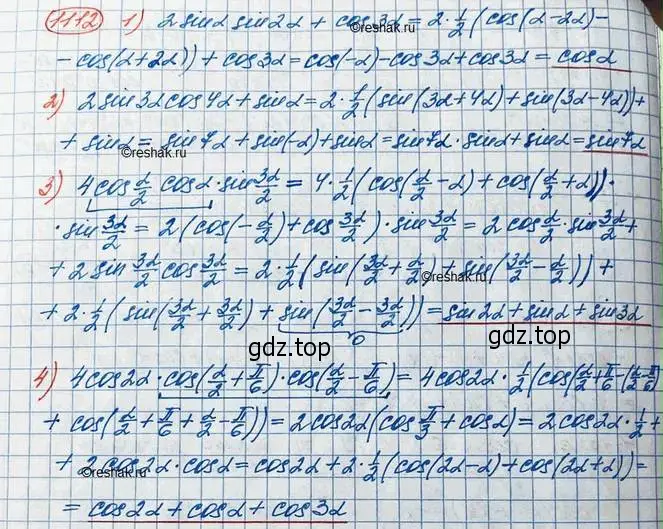 1112 1) 2 sinα sin2α + cos3α = 2·1/2 (cos(α-2α)-
- cos(α+2α)) + cos3α = cos(-α) - cos3α + cos3α = cosα
©reshak.ru
2) 2 sin3α cos4α + sinα = 2·1/2 (sin(3α+4α) + sin(3α-4α)) +
+ sinα = sin7α + sin(-α) + sinα = sin7α · sinα + sinα = sin7α
©reshak.ru
3) 4 cos α/2 cosα · sin 3α/2 = 4·1/2 (cos(α/2 - α) + cos(α/2 + α)) ·
· sin 3α/2 = 2 (cos(-α/2) + cos 3α/2) · sin 3α/2 = 2 cos α/2 · sin 3α/2 +
+ 2 sin 3α/2 cos 3α/2 = 2·1/2 (sin(3α/2 + α/2) + sin(3α/2 - α/2)) +
©reshak.ru
+ 2·1/2 (sin(3α/2 + 3α/2) + sin(3α/2 - 3α/2)) = sin2α + sinα + sin3α
0
gdz.top
gdz.top
4) 4 cos2α · cos(α/2 + π/6) · cos(α/2 - π/6) = 4 cos2α · 1/2 (cos(α/2 + π/6 - (α/2 - π/6)
+ cos(α/2 + π/6 + α/2 - π/6)) = 2 cos2α (cos π/3 + cosα) = 2 cos2α · 1/2 +
+ 2 cos2α · cosα = cos2α + 2·1/2 (cos(2α-α) + cos(2α+α)) =
©reshak.ru
= cos2α + cosα + cos3α